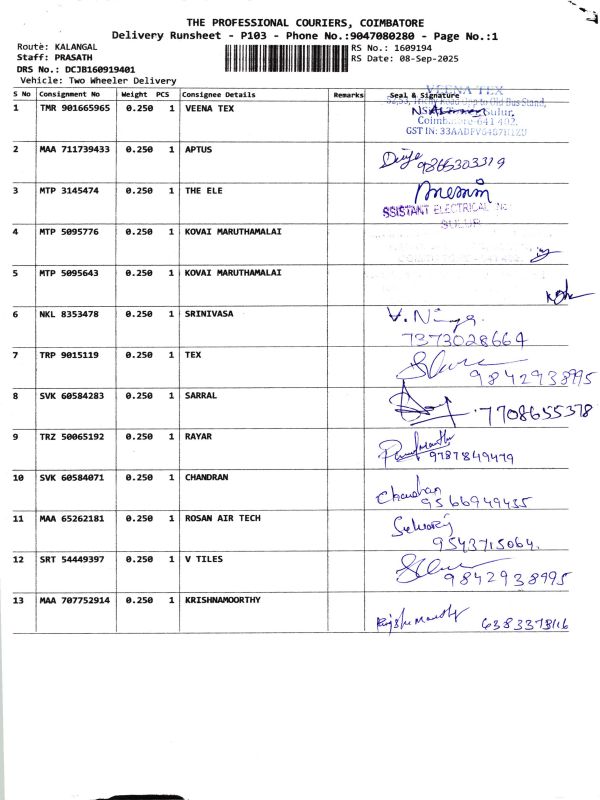 THE PROFESSIONAL COURIERS, COIMBATORE
Delivery Runsheet - P103 - Phone No.:9047080280 - Page No.:1
Route: KALANGAL
RS No.: 1609194
Staff: PRASATH
RS Date: 08-Sep-2025
DRS No.: DCJB160919401
Vehicle: Two Wheeler Delivery
S No Consignment No Weight PCS Consignee Details Remarks Seal & Signature
VEENA TEX
1 TMR 901665965 0.250 1 VEENA TEX
Coimbatore-641 402.
2 MAA 711739433 0.250 1 APTUS
9865303319
3 MTP 3145474 0.250 1 THE ELE
SSISTANT ELECTRICAL
SULUR
4 MTP 5095776 0.250 1 KOVAI MARUTHAMALAI
5 MTP 5095643 0.250 1 KOVAI MARUTHAMALAI
6 NKL 8353478 0.250 1 SRINIVASA
7373028664
7 TRP 9015119 0.250 1 TEX
9842938995
8 SVK 60584283 0.250 1 SARRAL
7708655378
9 TRZ 50065192 0.250 1 RAYAR
9787849479
10 SVK 60584071 0.250 1 CHANDRAN
Chandran
9566949435
11 MAA 65262181 0.250 1 ROSAN AIR TECH
9543715064.
12 SRT 54449397 0.250 1 V TILES
9842938995
13 MAA 707752914 0.250 1 KRISHNAMOORTHY